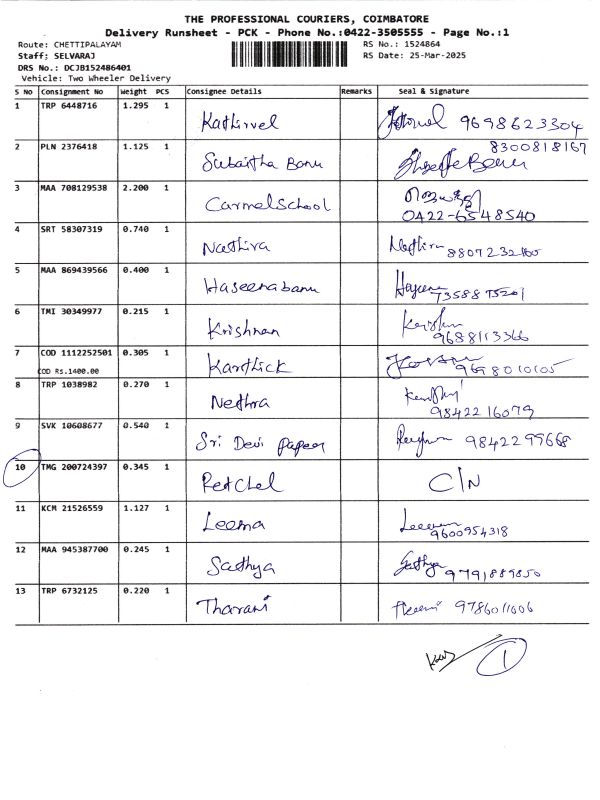 THE PROFESSIONAL COURIERS, COIMBATORE
Delivery Runsheet - PCK - Phone No.:0422-3505555 - Page No.:1
Route: CHETTIPALAYAM
RS No.: 1524864
Staff; SELVARAJ
RS Date: 25-Mar-2025
DRS No.: DCJB152486401
Vehicle: Two Wheeler Delivery
S NO Consignment No Weight PCS Consignee Details Remarks Seal & Signature
1 TRP 6448716 1.295 1 Kathirvel 9698623304
2 PLN 2376418 1.125 1 Subaitha Banu 8300818167
3 MAA 708129538 2.200 1 Carmel School
0422-6548540
4 SRT 58307319 0.740 1 Nathira 8807232160
5 MAA 869439566 0.400 1 Haseenabanu
6 TMI 30349977 0.215 1 Krishnan
9688113366
7 COD 1112252501 0.305 1 Karthick
COD Rs.1400.00 9698010105
8 TRP 1038982 0.270 1 Nethra
9842216079
9 SVK 10608677 0.540 1 Sri Devi Paper 9842299668
10 TMG 200724397 0.345 1 Retchel C/N
11 KCM 21526559 1.127 1 Leema
9600954318
12 MAA 945387700 0.245 1 Sathya Sathya 9791889850
13 TRP 6732125 0.220 1 Tharani 9786011006
1